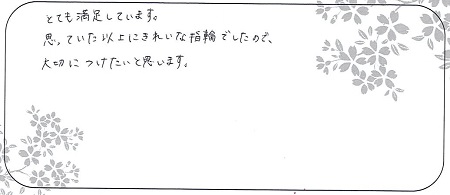 とても満足しています。
思っていた以上にきれいな指輪でしたので、
大切につけたいと思います。